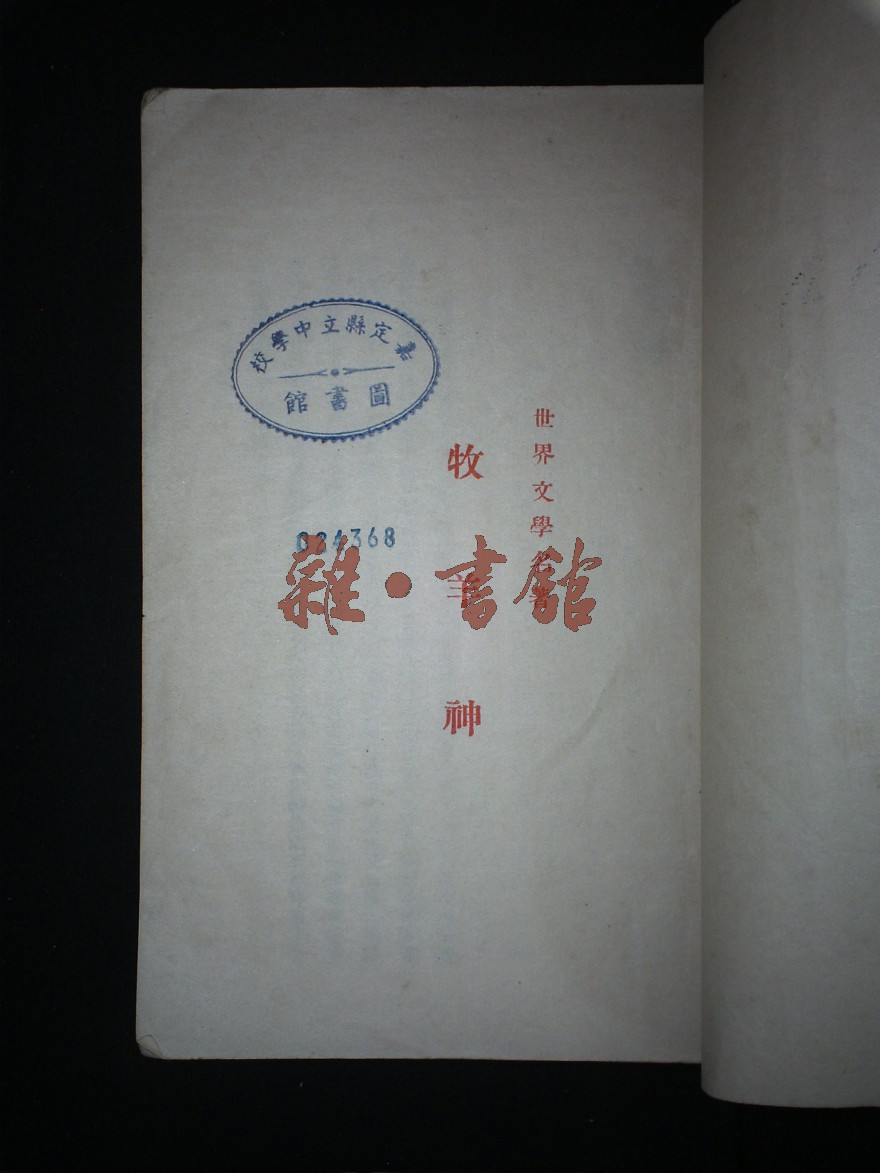 世界文學名著
牧羊神
嘉定縣立中學校
圖書館
024368
雜·書館